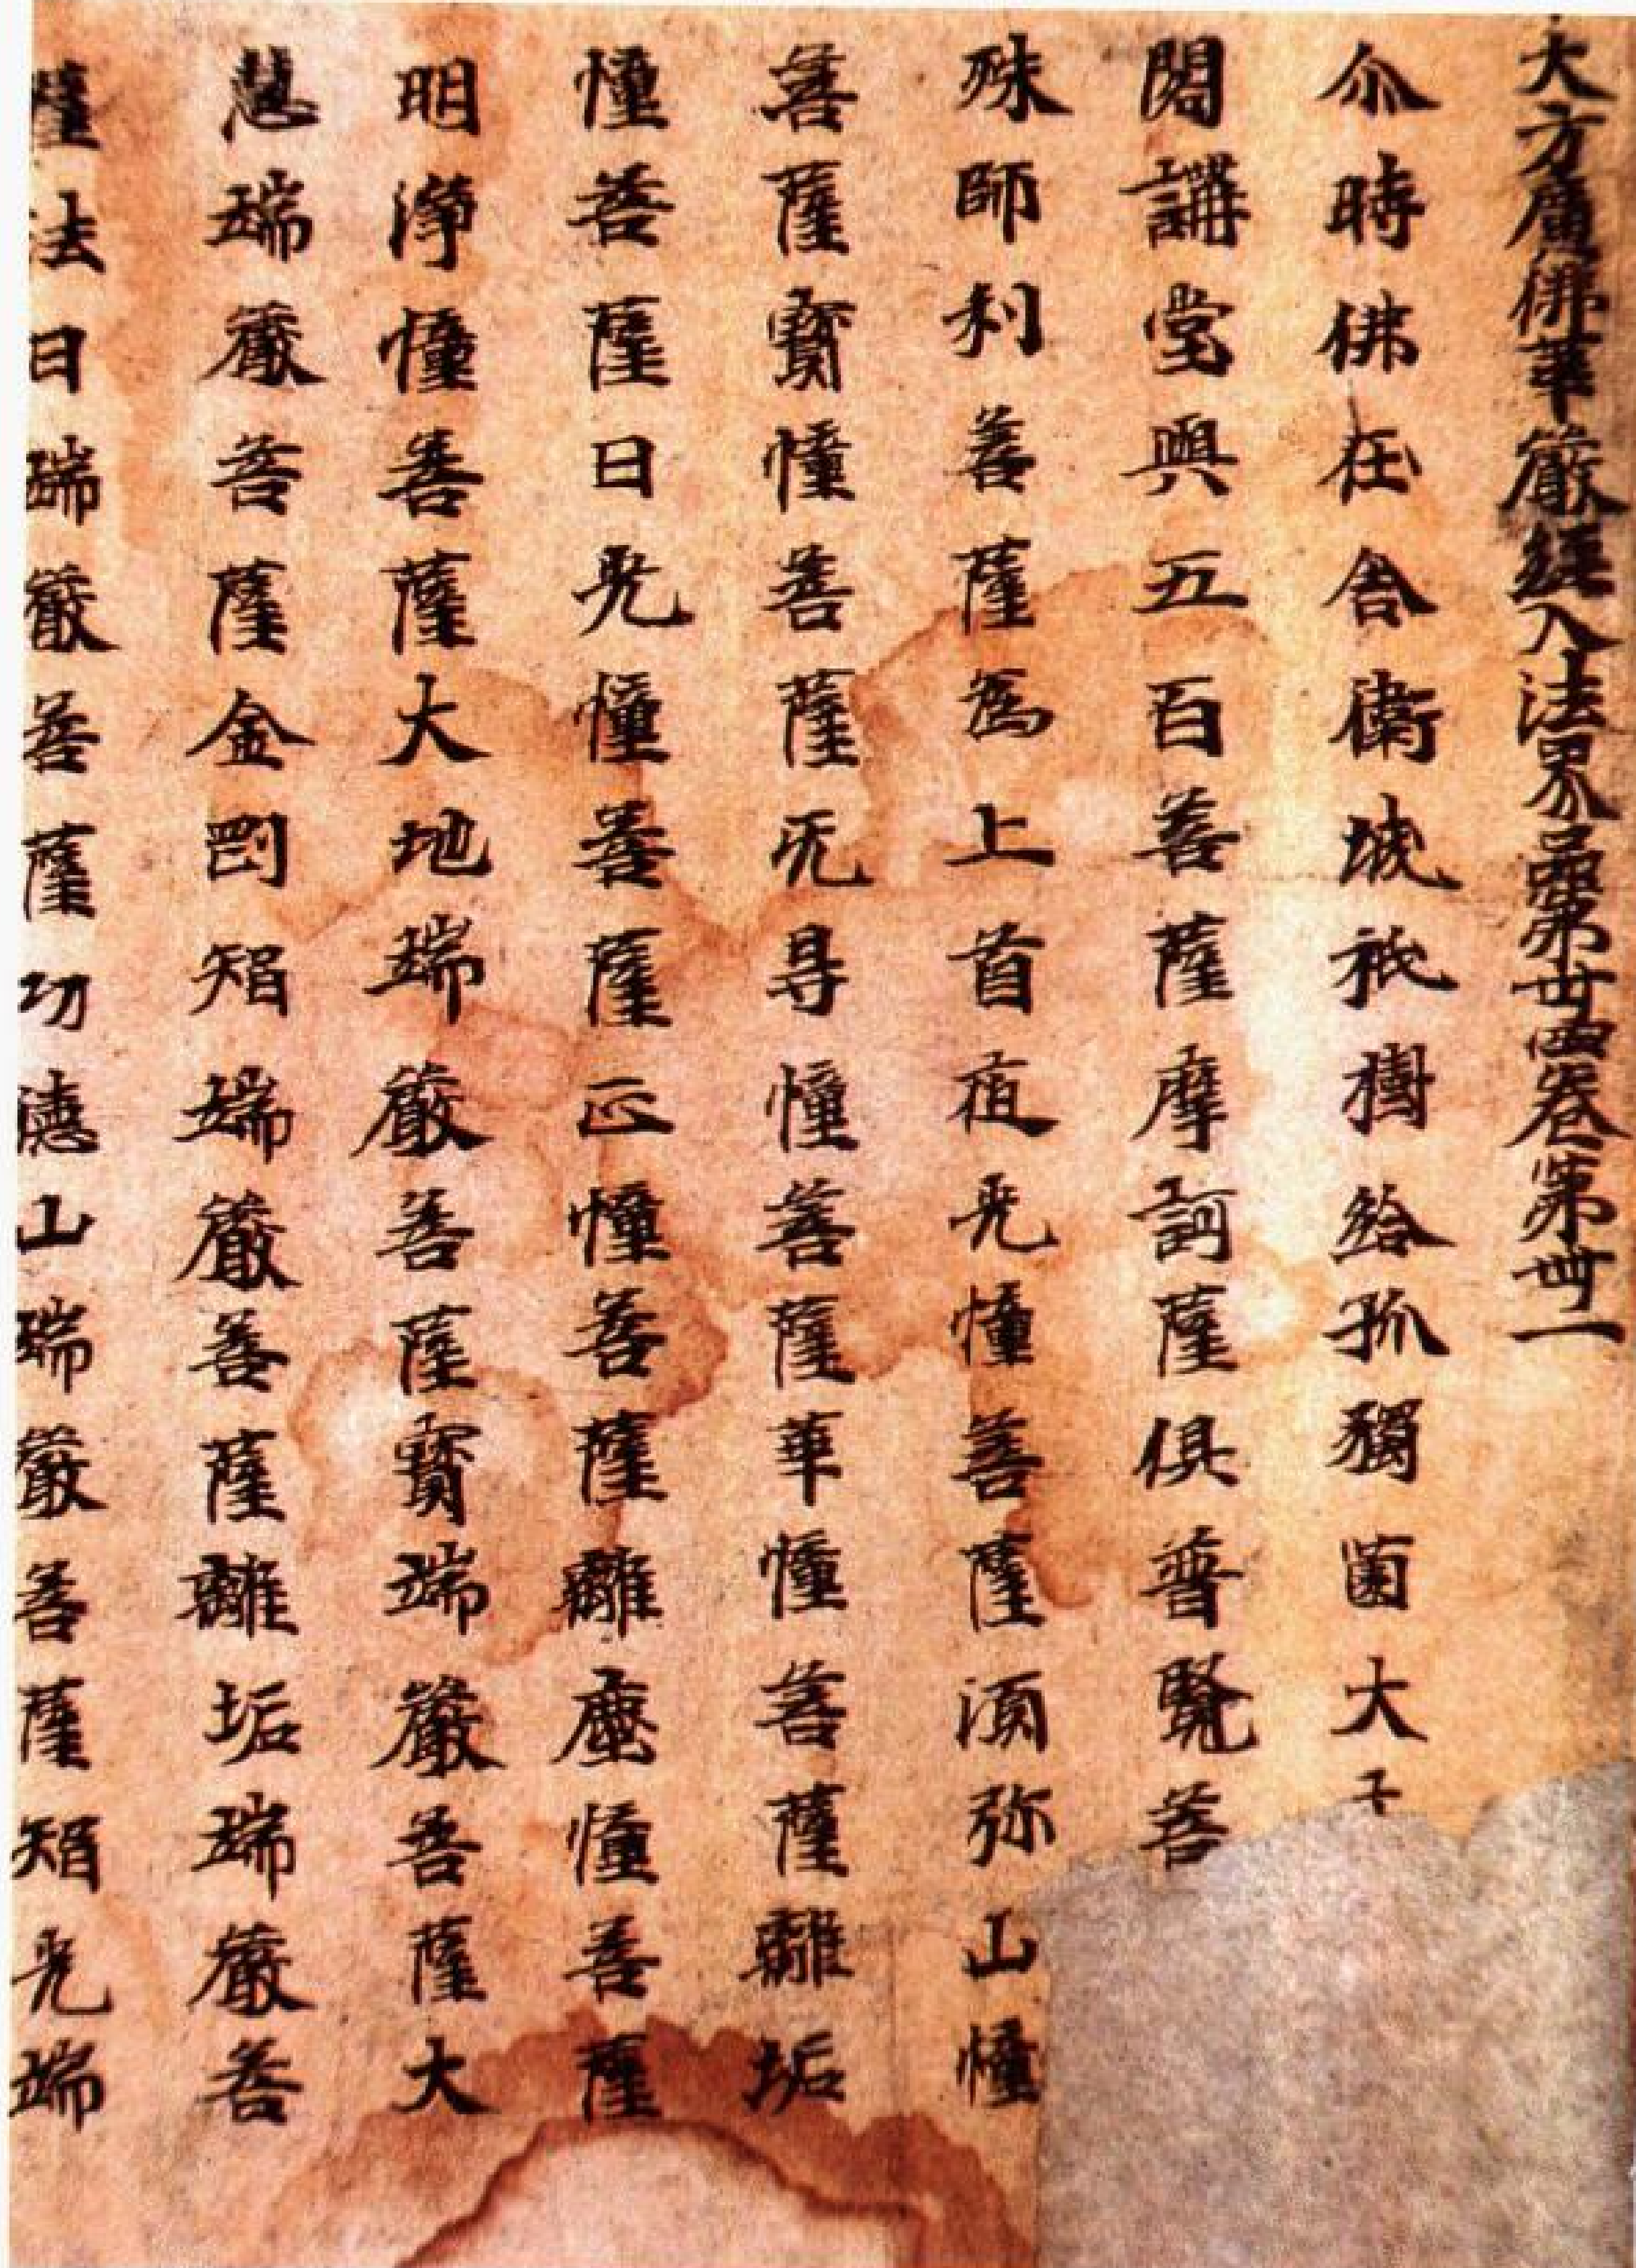 大方廣佛華嚴經入法界品第卅四卷第卌一
尒時佛在舍衛城祇樹給孤獨菌大子
閣講堂與五百菩薩摩訶薩俱普賢菩
殊師利菩薩為上首夜光幢菩薩須弥山幢
菩薩寶幢菩薩无㝵幢菩薩華幢菩薩離垢
幢菩薩日光幢菩薩正幢菩薩離塵幢菩薩
明淨幢菩薩大地端嚴菩薩寶端嚴菩薩大
慧端嚴菩薩金剛智端嚴菩薩離垢端嚴菩
薩法日端嚴菩薩功德山端嚴菩薩智光端